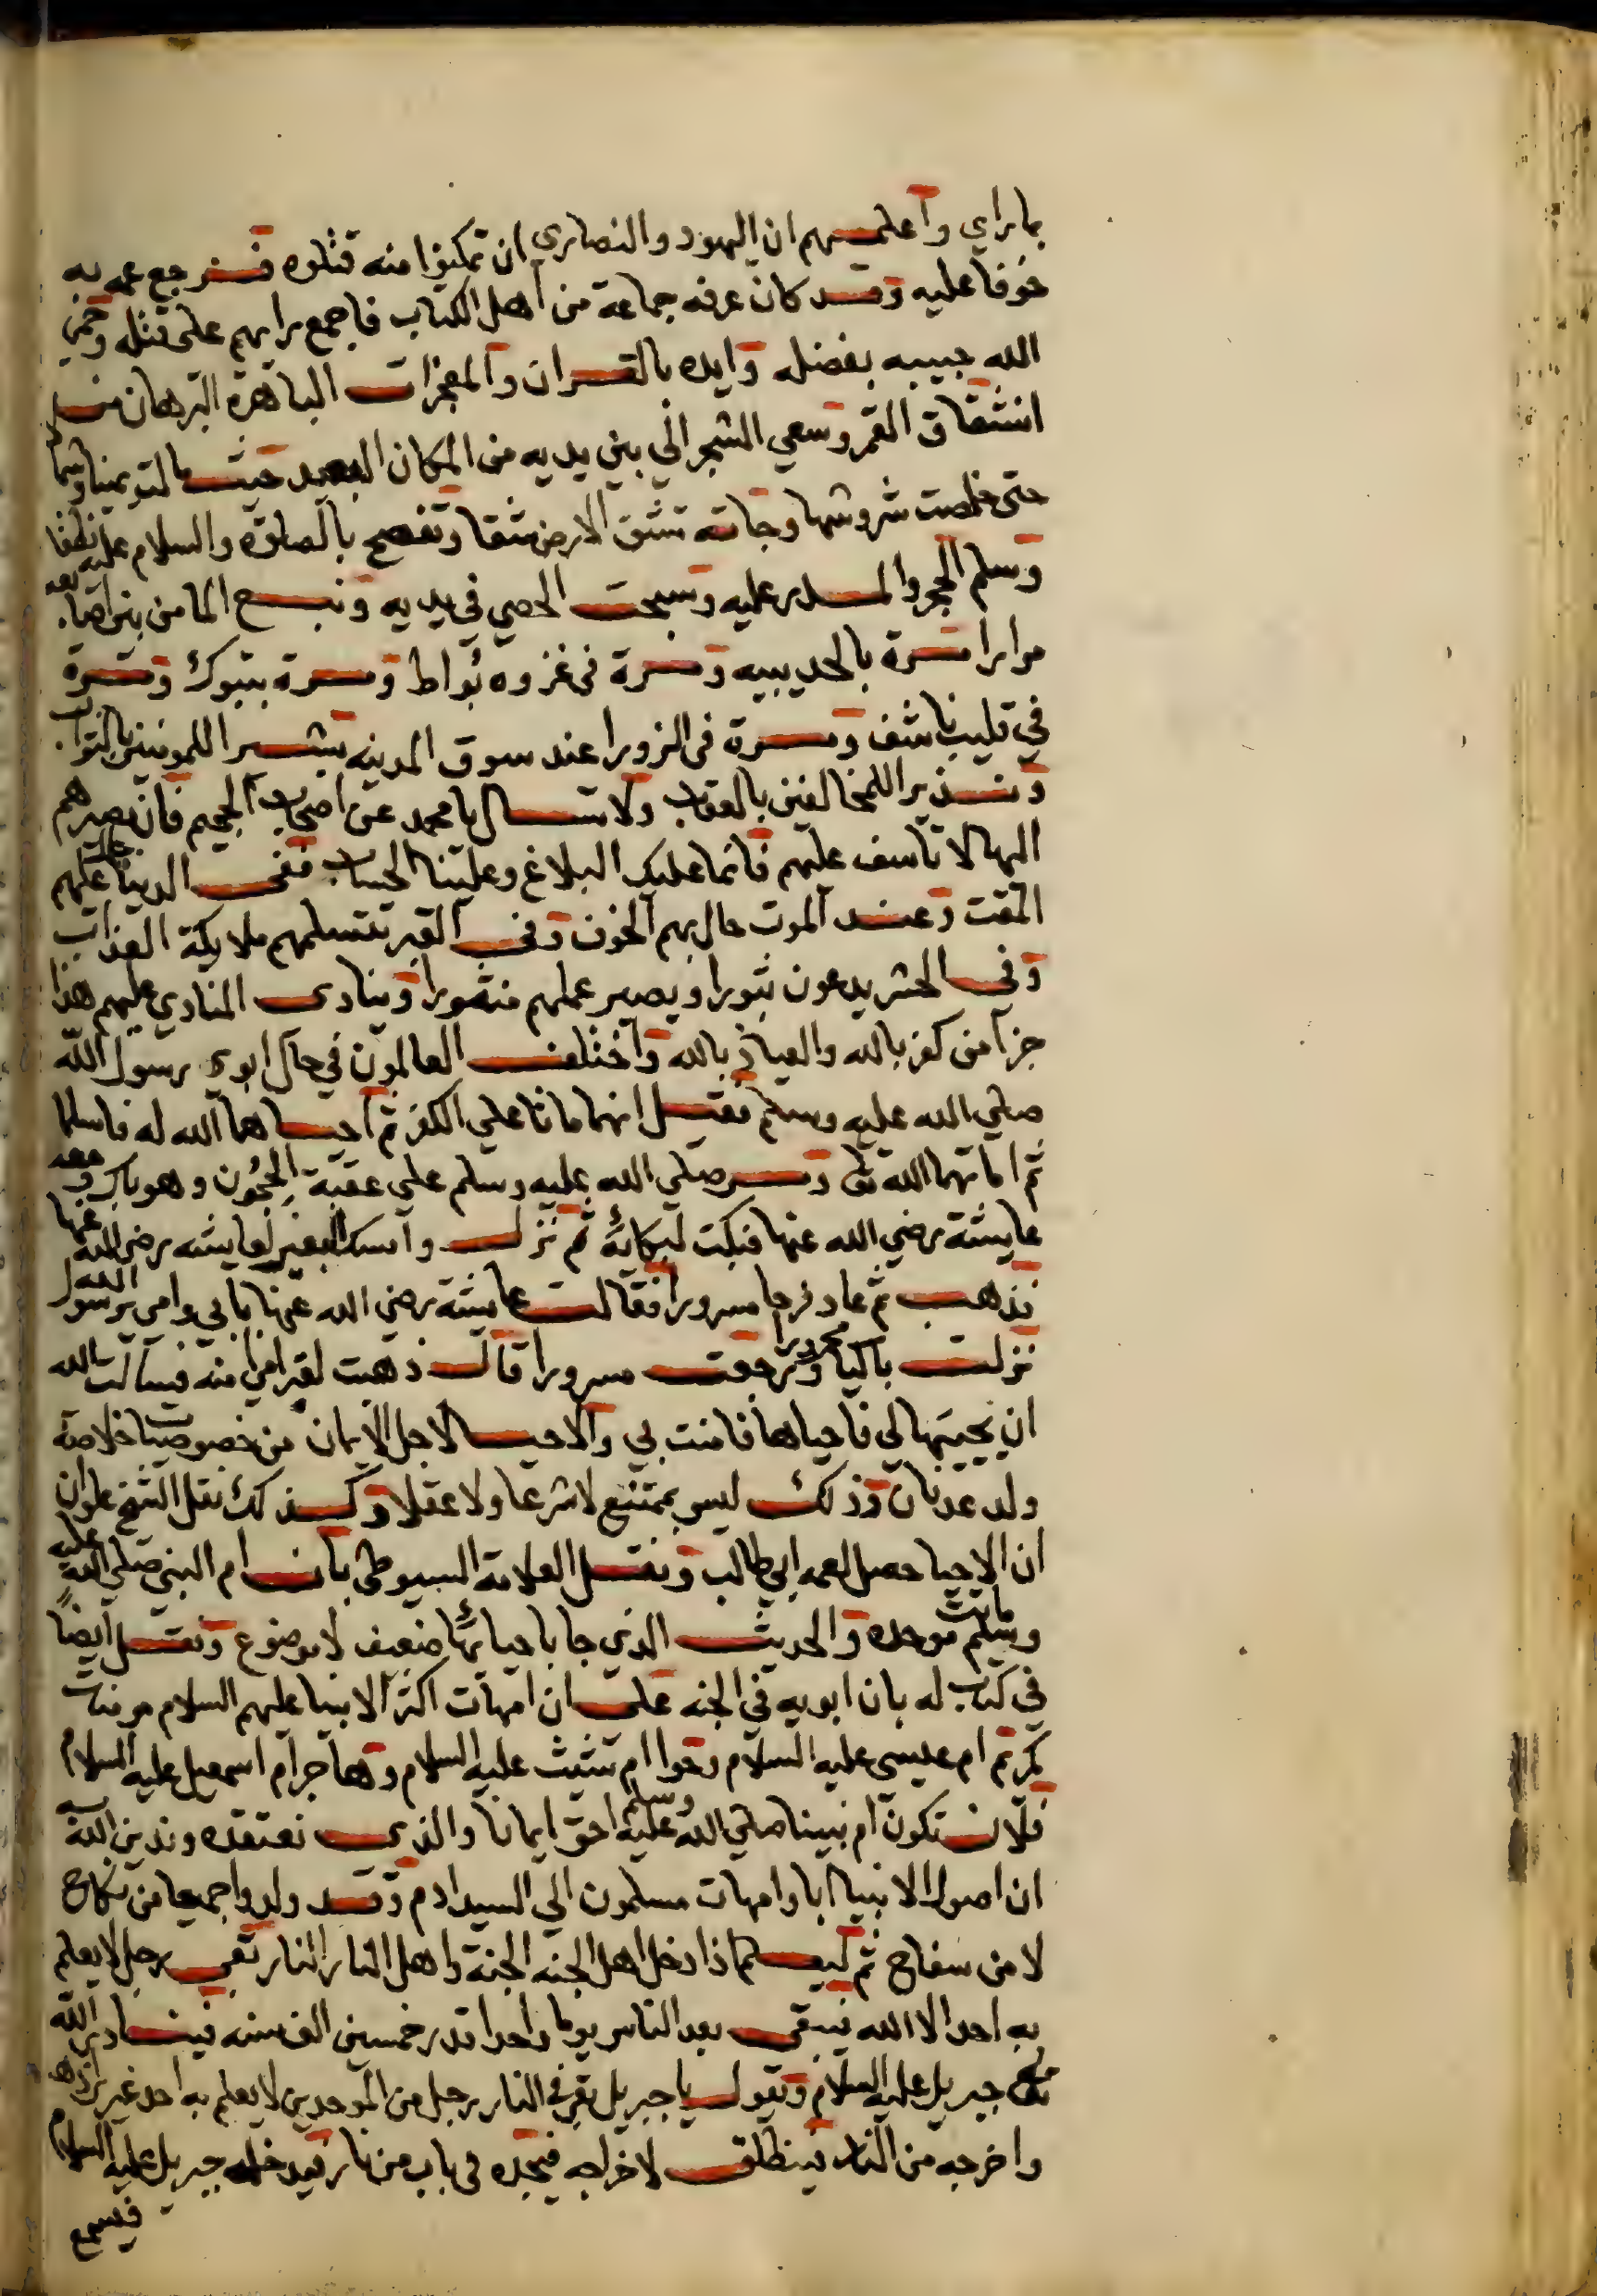 بما راي واعلمهم ان اليهود والنصاري ان تمكنوا منه قتلوه فرجع عمه به
خوفا عليه وقد كان عرفه جماعة من اهل الكتاب فاجمع رايهم على قتله وحمي
الله حبيبه بفضله وايده بالقران والمعجزات الباهرة البرهان من
انشقاق القمر وسعي الشجر الي بين يديه من المكان البعيد حيث مالتو يمينا وشمالا
حتى خلصت شروشها وجاته تشق الارض شقا وتفصح بالصلوة والسلام عليه نطقا
وسلم الحجر والمدر عليه وسبحت الحصي في يديه ونبع الما من بين اصابعه
مرارا مرة بالحديبيه ومرة في غزوه بُواط ومرة بتبوك ومرة
في قليب ناشف ومرة في الزورا عند سوق المدينه بشيرا للمومنين بالثواب
ونذيرا للمخالفين بالعقاب ولا تسال يا محمد عن اصحاب الجحيم فان مصيرهم
اليها لا تاسف عليهم فانما عليك البلاغ وعلينا الحساب ففي الدنيا عليهم
المقت وعند الموت حال بهم الخوف وفي القبر تتسلمهم ملايكة العذاب
وفي الحشر يدعون ثبورا ويصير عملهم منثورا وينادى المنادي عليهم هذا
جزآ من كفر بالله والعياذ بالله واختلف العالمون في حال ابوى رسول الله
صلي الله عليه وسلم فقيل انهما ماتا علي الكفر ثم احياهما الله له فاسلما
ثم اماتهما الله تعالى ومر صلي الله عليه وسلم علي عقبة الحجُون وهو باك ومعه
عايشة رضي الله عنها فبكت لبكائه ثم نزل وامسك البعير لعايشه رضي الله عنها
فذهب ثم عاد فرحا مسرورا فقالت عايشة رضي الله عنها بابي وامي يا رسول الله
نزلت باكيا ورجعت مسرورا قال ذهبت لقبر امي امنه فسالت الله
ان يحييها لي فاحياها فامنت بي والاحيا لاجل الايمان من خصوصيات خلاصة
ولد عدنان وذلك ليس بممتنع لا شرعا ولا عقلا وكذلك نقل الشيخ علوان
ان الاحيا حصل لعمه ابي طالب ونقل العلامة السيوطي بان ام النبي صلي الله عليه
وسلم ماتت موحدة والحديث الذي جا باحيائها ضعيف لا موضوع ونقل ايضاً
في كتاب له بان ابويه في الجنه على ان امهات اكثر الانبيا عليهم السلام مومنات
كمريم ام عيسى عليه السلام وحوا ام شيث عليه السلام وهاجر ام اسمعيل عليه السلام
فلان تكون ام نبينا صلي الله عليه وسلم احق ايمانا والذي نعتقده وندين الله به
ان اصول الانبيا ابا وامهات مسلمون الي السيد ادم وقد ولدوا جميعا من نكاح
لا من سفاح ثم كيف اذا دخل اهل الجنه الجنة واهل النار النار بقي رجل لا يعلم
به احد الا الله فيبقى بعد الناس يوما واحدا قدر خمسين الف سنه فينادي الله
تعالى جبريل عليه السلام وتقول يا جبريل بقي في النار رجل من الموحدين لا يعلم به احد غيري اذهب
واخرجه من النار فينطلق لاخراجه فيجده في باب من نار فيدخله جبريل عليه السلام
فيسمع